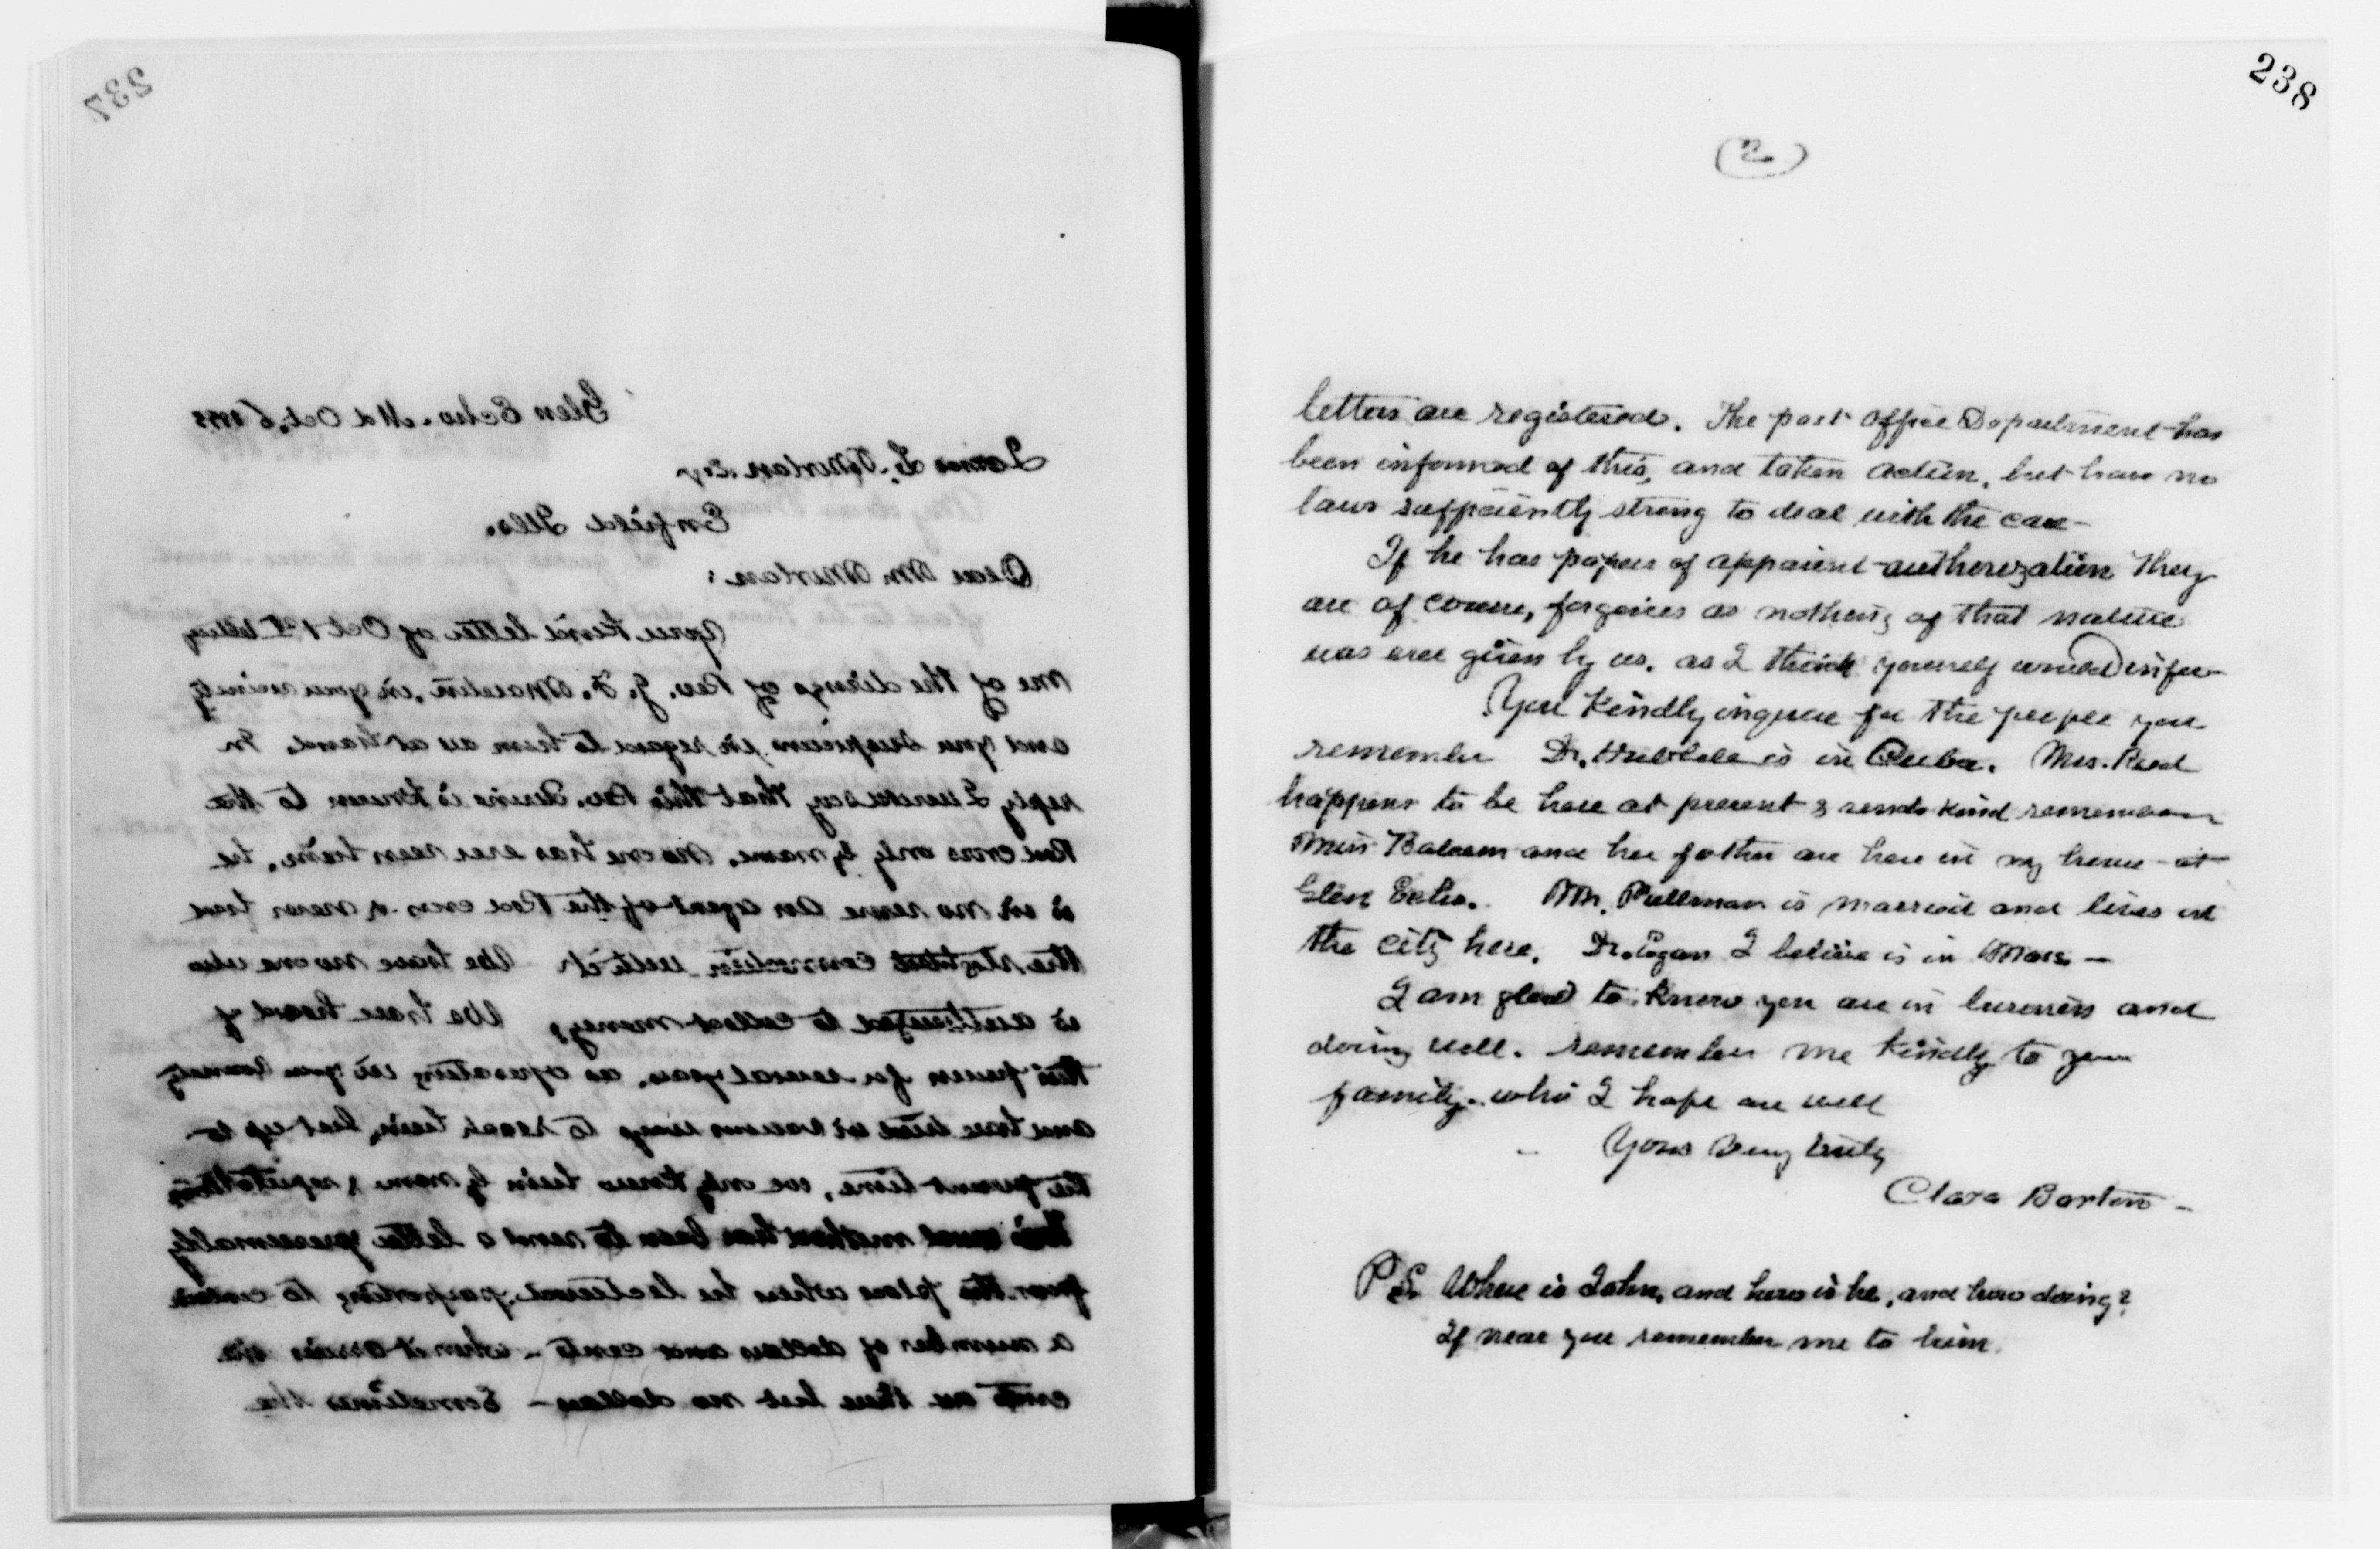 237
Glen Echo. Md Oct. 6
Enfield Ills.
Dear Mr. Morlan:
Your kind letter of Oct 1st telling
me of the doings of Rev. J. F. in your vicinity
and your suspicions in regard to him are at hand. In
reply I would say that this Rev. Divine is known to the
Red Cross only by name. No one has ever seen him. he
is in no sense an agent of the Red Cross or ever had
the slightest connection with it. We have no one who
is authorized to collect money, We have heard of
this for several years, as operating in your
and have tried in various ways to reach him, but up to
the present time, we only know him by name & reputation
This usual method has been to send a letter presumably
from the place where he lectured, purporting to contain
a number of dollars and cents - when it arrives the
cents are there but no dollars - Sometimes the
238
(2)
letters are registered. The post office Department has
been informed of this, and taken action, but have no
laws sufficiently strong to deal with the case -
If he has papers of apparent authorization they
are of course, forgeries as nothing of that nature
was ever given by us, as I think yourself would infer
You kindly inquire for the people you
remember Dr. Hubbell is in Cuba. Mrs. Reed
happens to be here at present & sends kind
Miss and her father are here in my home at
Glen Echo. Mr. Pullman is married and lives in
the city here. Dr. Egan I believe is in Mass. -
I am glad to know you are in business and
doing well. remember me kindly to your
family. who I hope are well
Yours Very truly
Clara Barton -
P.S. Where is John, and how is he, and how doing?
If near you remember me to him.